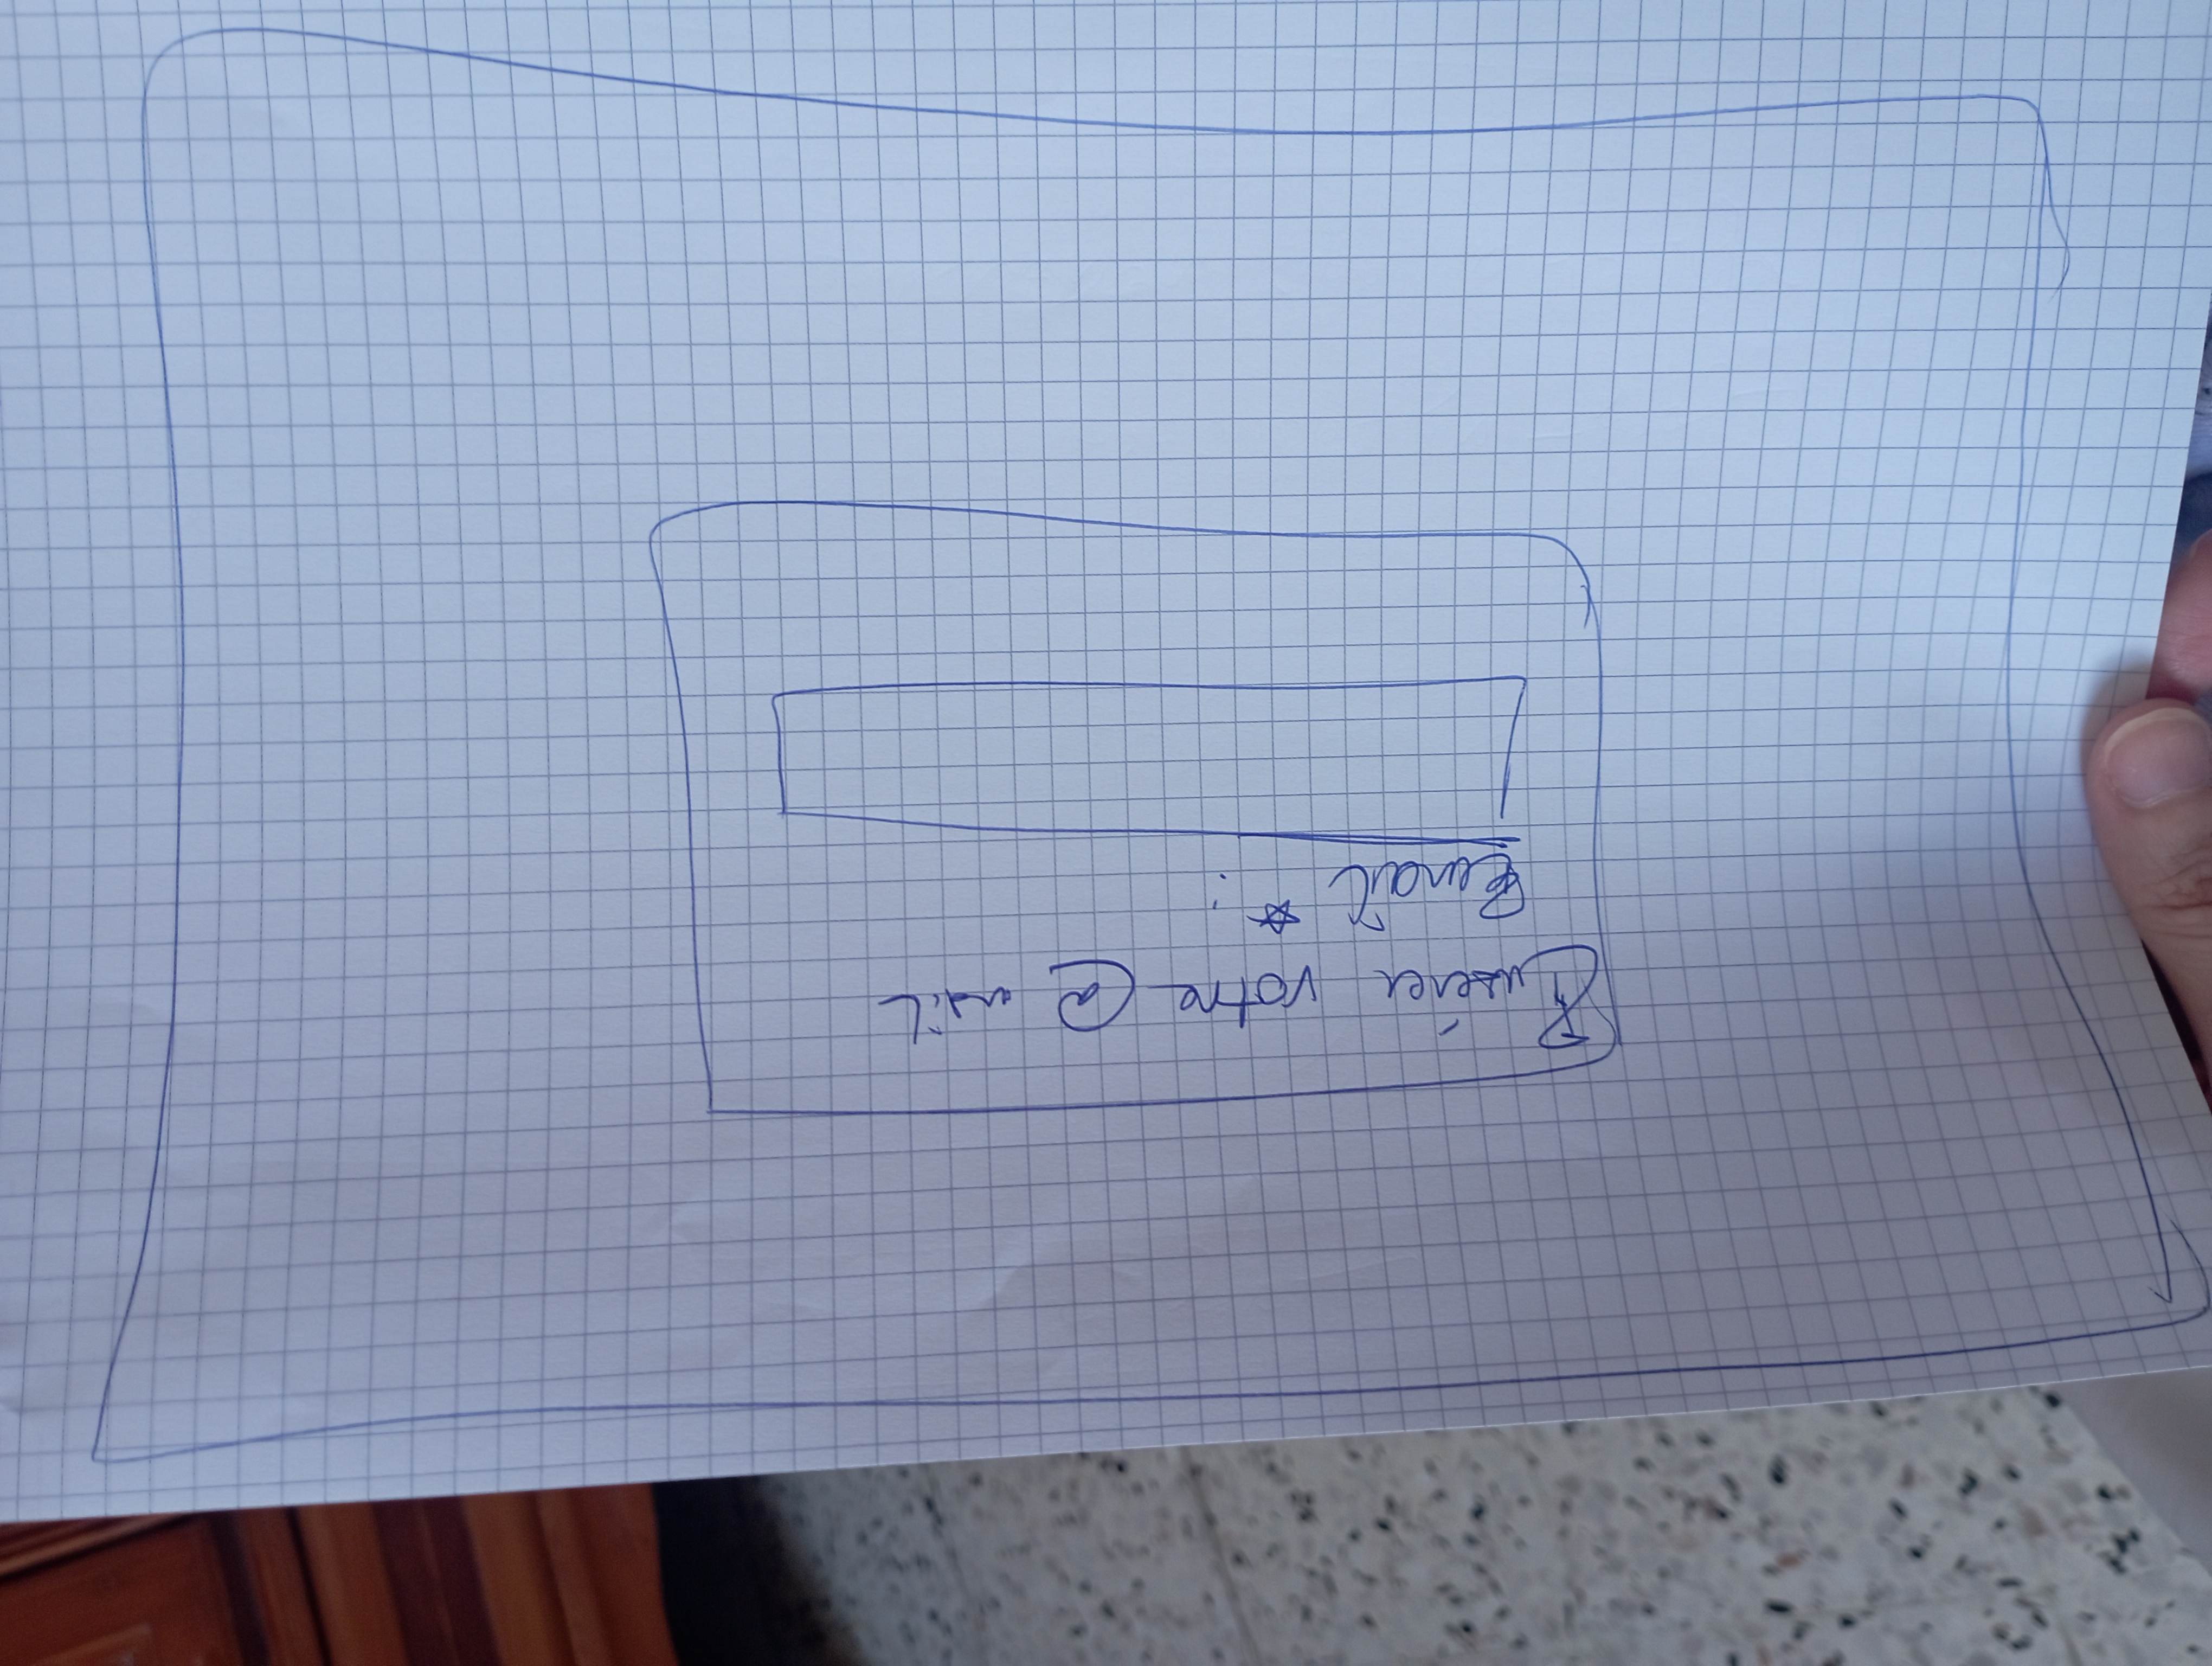 Insérer votre @ mail
Email * :